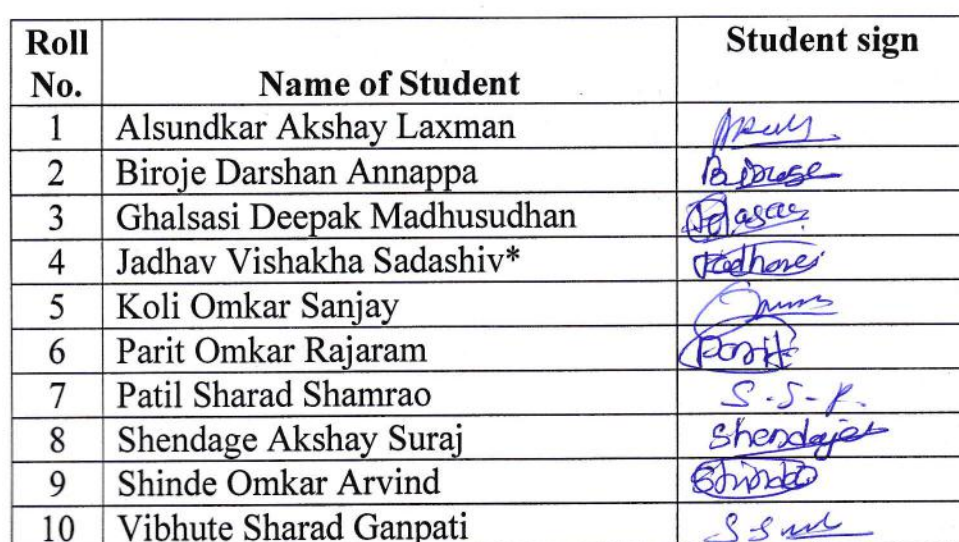 Roll No. Name of Student Student sign
1 Alsundkar Akshay Laxman
2 Biroje Darshan Annappa Biroje
3 Ghalsasi Deepak Madhusudhan
4 Jadhav Vishakha Sadashiv* Jadhav
5 Koli Omkar Sanjay
6 Parit Omkar Rajaram Parit
7 Patil Sharad Shamrao S-S-P.
8 Shendage Akshay Suraj Shendage
9 Shinde Omkar Arvind Shinde
10 Vibhute Sharad Ganpati